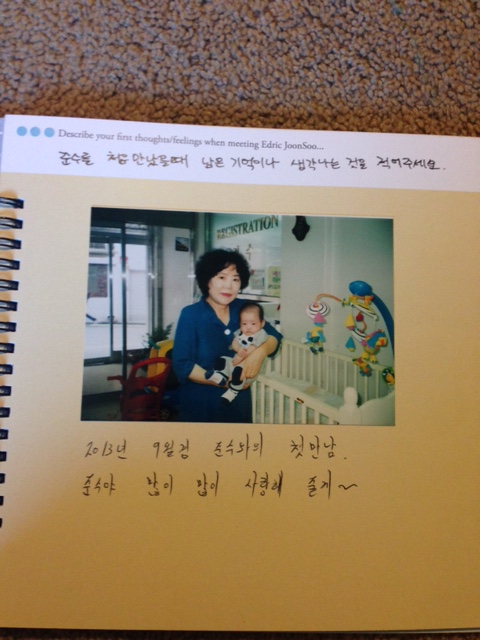 Describe your first thoughts/feelings when meeting Edric JoonSoo...
준수를 처음 만났을때 남은 기억이나 생각나는 것을 적어주세요.
GISTRATION
2013년 9월경 준수와의 첫만남.
준수야 많이 많이 사랑해